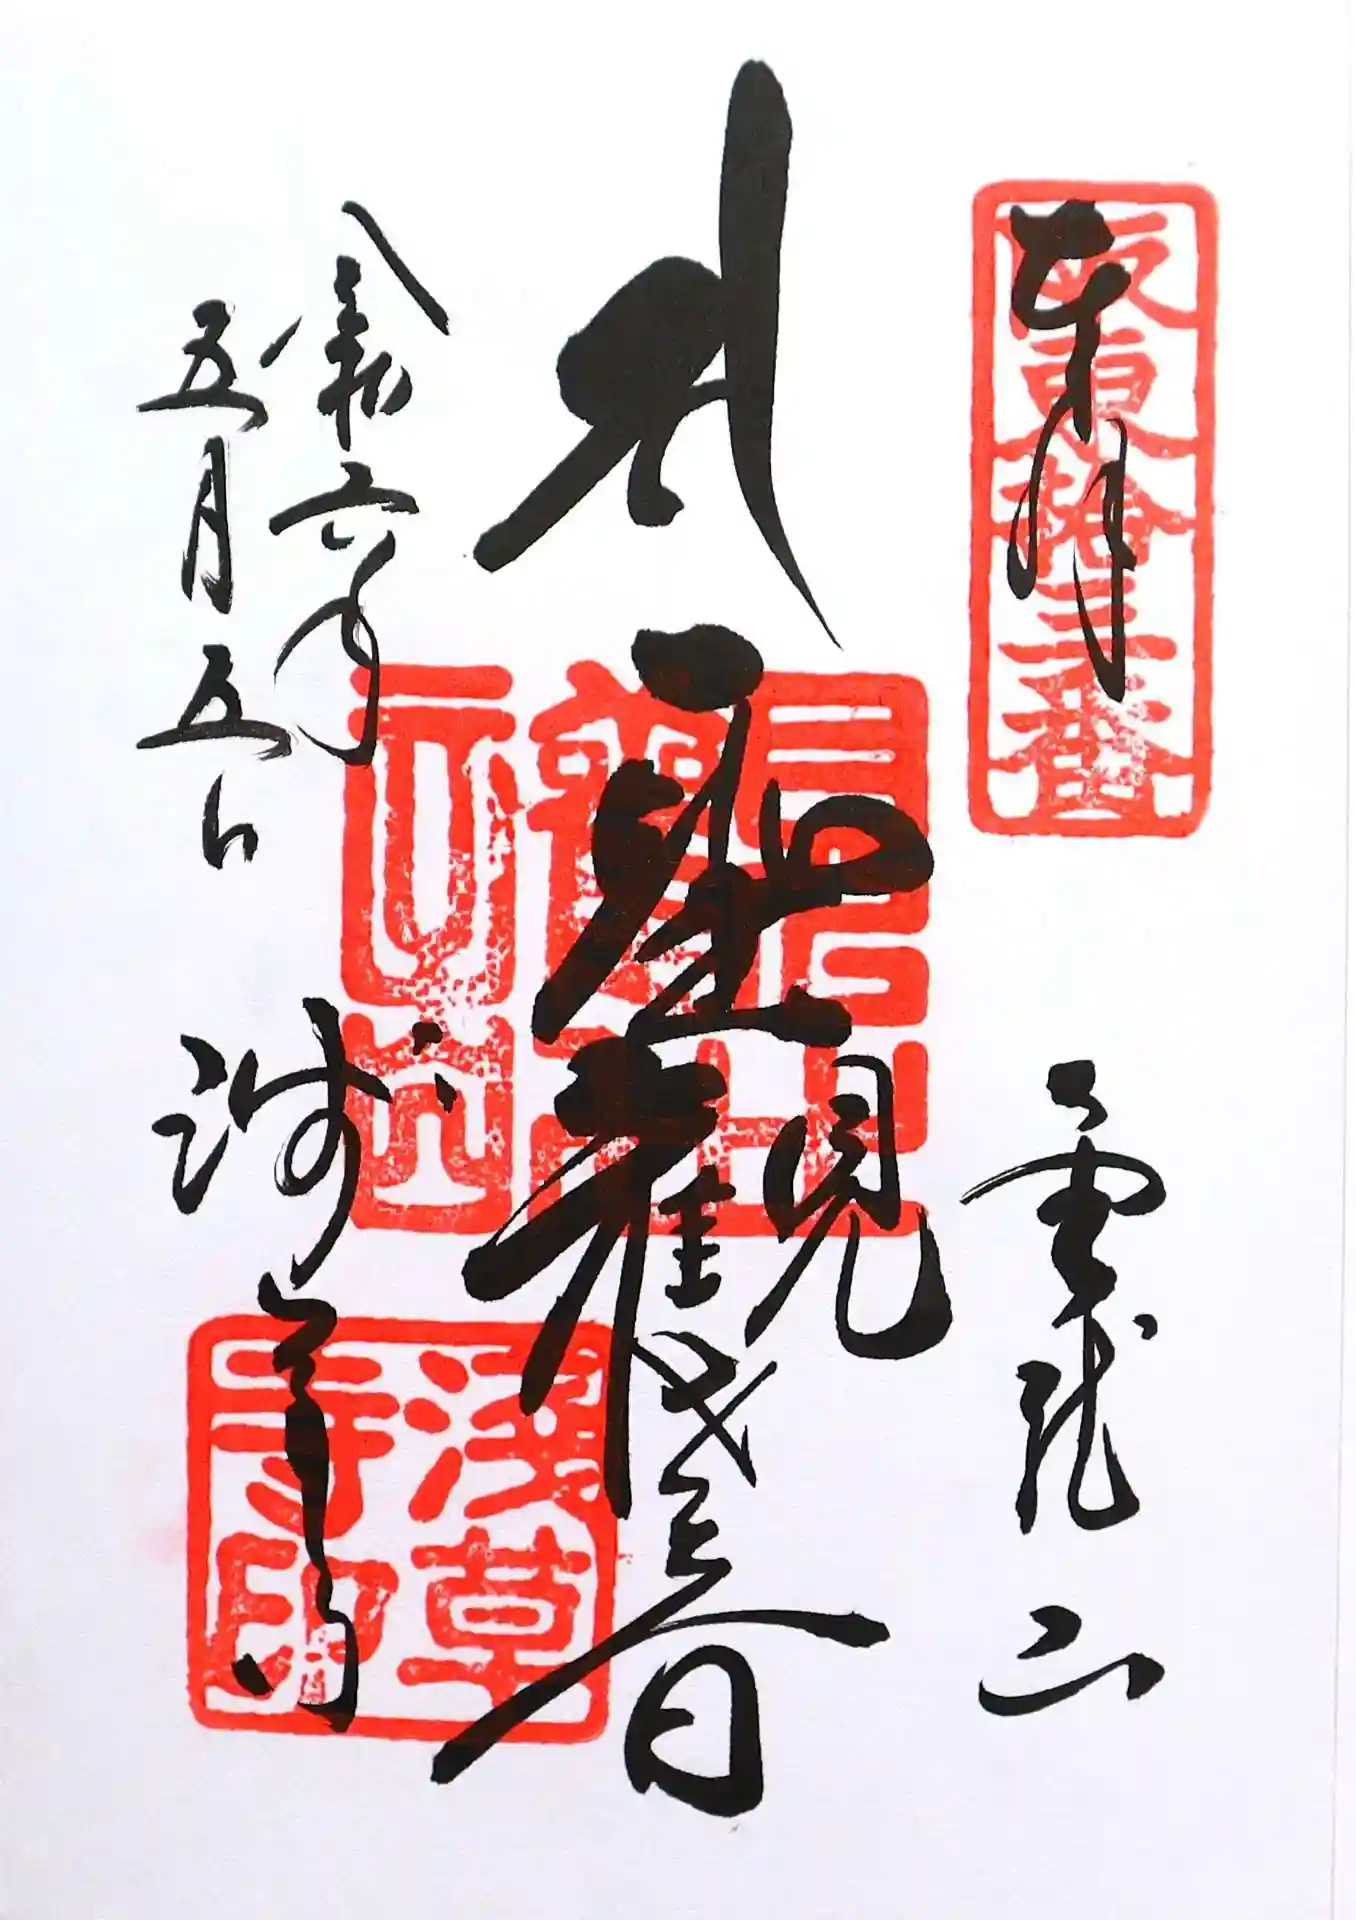 奉拝
坂東拾三番
龍山
聖觀世音
令和六年
五月五日
浅草寺
淺草寺印